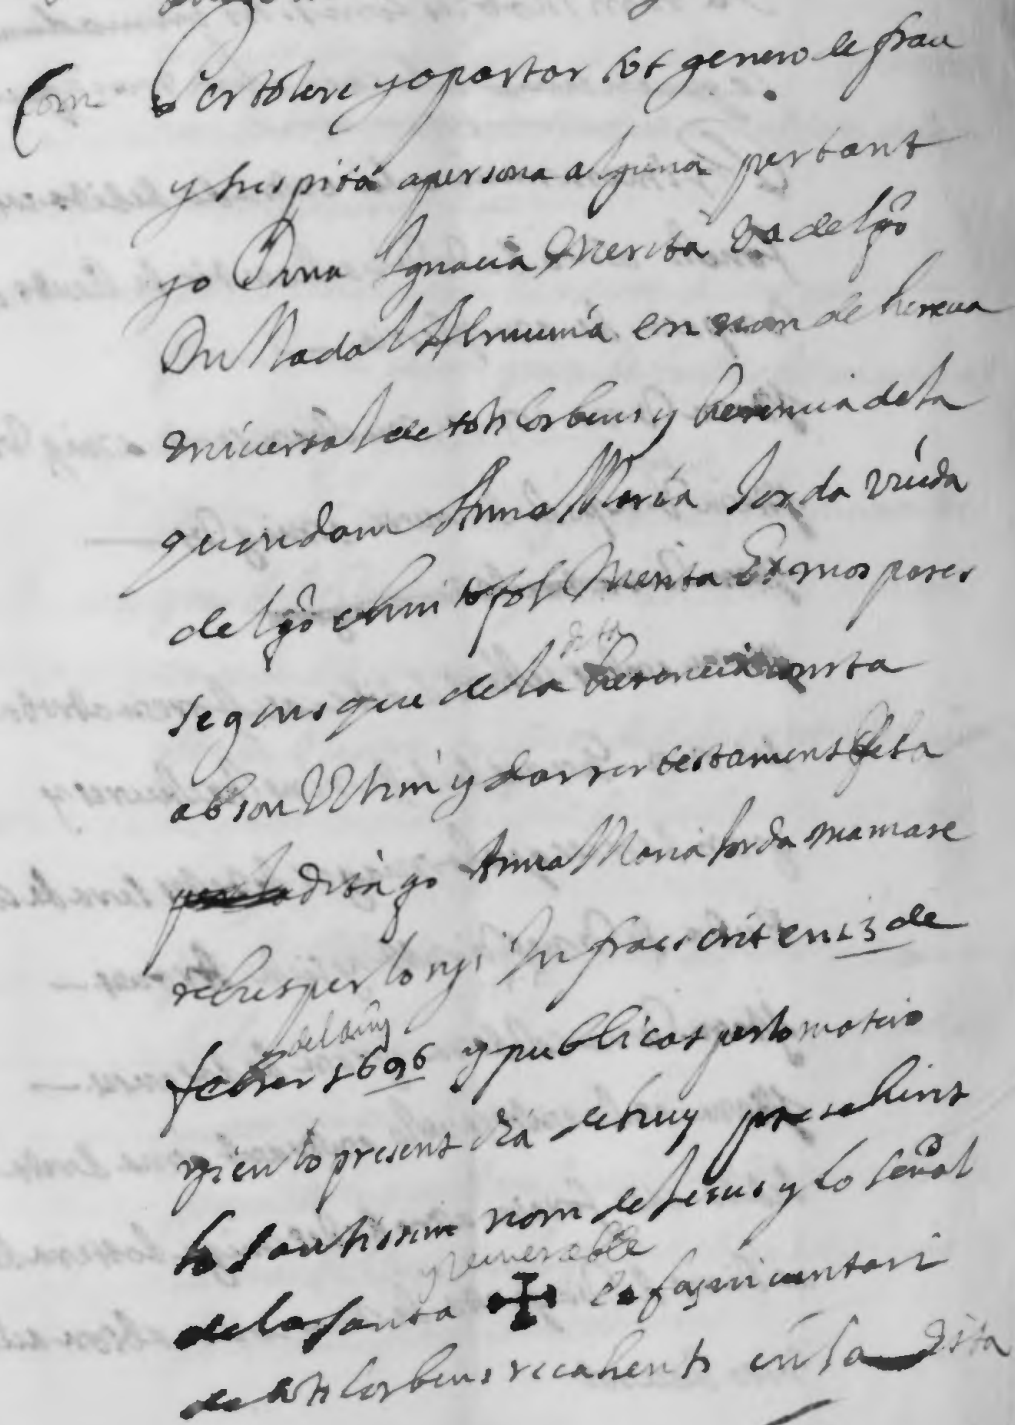 Com Per tolere y apartar tot genero de frau
y suspita a persona alguna pertant
yo Dona Ignacia Merita Va del qo
Dn Nadal Almunia en nom de hereua
vniuersal de tots los bens y herencia de la
quondam Anna Maria Jorda viuda
del qo Christofol Merita Et mos pares
segons que de la dta herencia consta
ab son Ultim y darrer testament feta
dita qo Anna Maria Jorda ma mare
rebut per lo nri Infraescrit en 13 de
febrer del any 1696 y publicat per lo mateix
nri en lo present dia de huy presehint
lo santissim nom de Jesus y lo señal
de la santa y venerable ✠ faz inuentari
de tots los bens recahents en la dita